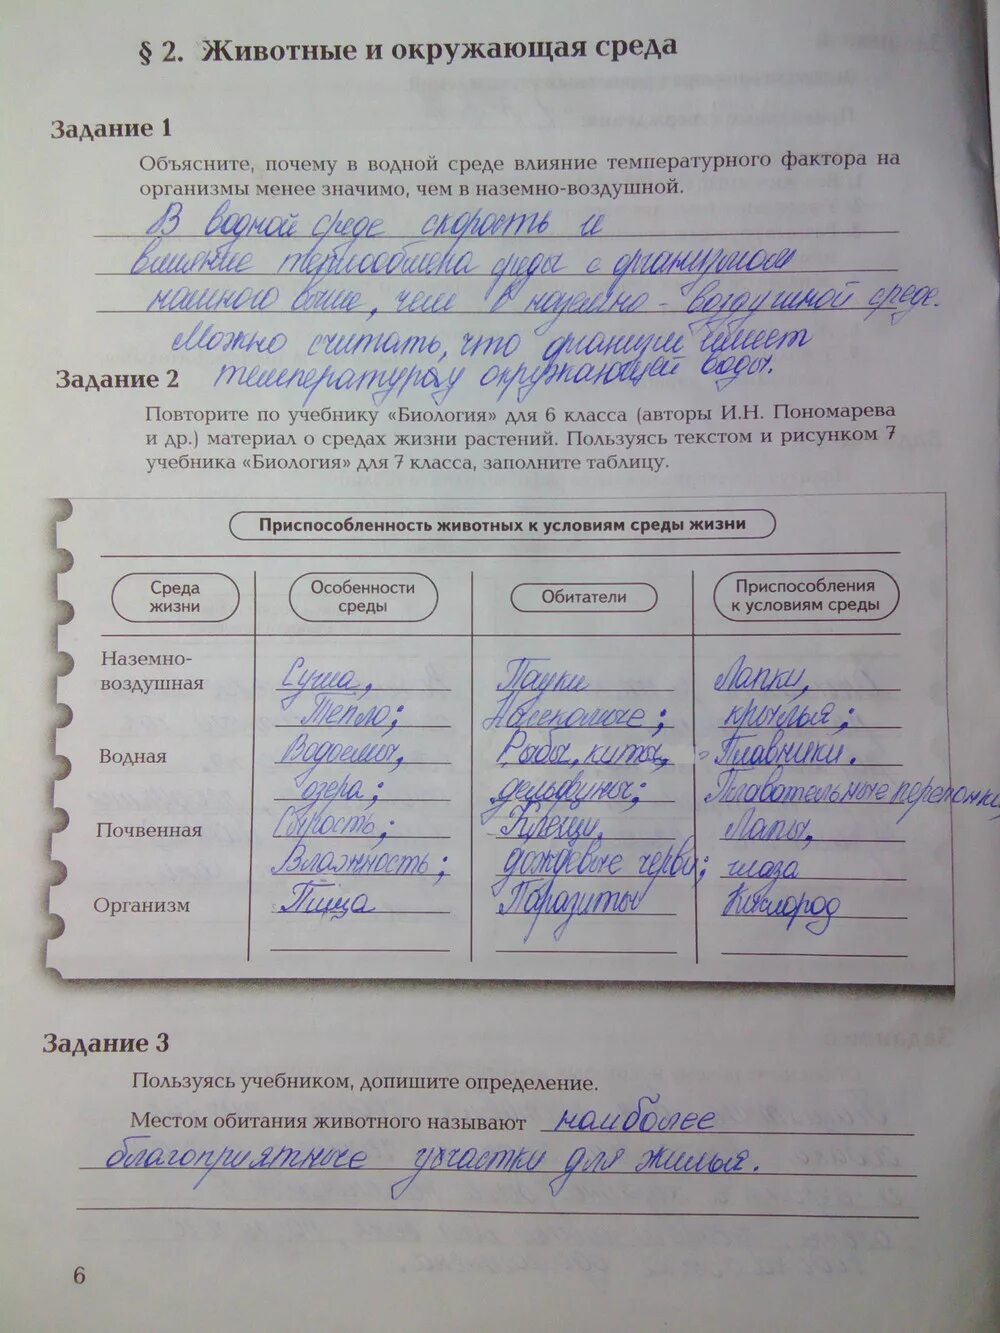 § 2. Животные и окружающая среда
Задание 1
Объясните, почему в водной среде влияние температурного фактора на
организмы менее значимо, чем в наземно-воздушной.
В водной среде скорость и
влияние теплообмена среды с организмом
намного выше, чем в наземно - воздушной среде.
Можно считать, что организм имеет
Задание 2 температуру окружающей воды.
Повторите по учебнику «Биология» для 6 класса (авторы И.Н. Пономарева
и др.) материал о средах жизни растений. Пользуясь текстом и рисунком 7
учебника «Биология» для 7 класса, заполните таблицу.
Приспособленность животных к условиям среды жизни
Среда жизни Особенности среды Обитатели Приспособления к условиям среды
Наземно-
воздушная Суша, Пауки Лапки,
Тепло; Насекомые; крылья;
Водная Водоемы, Рыбы, киты, Плавники.
озера; дельфины; Плавательные перепонки
Почвенная Сырость; Клещи, Лапы,
Влажность; дождевые черви; глаза
Организм Пища Паразиты Кислород
Задание 3
Пользуясь учебником, допишите определение.
Местом обитания животного называют наиболее
благоприятные участки для жилья.
6